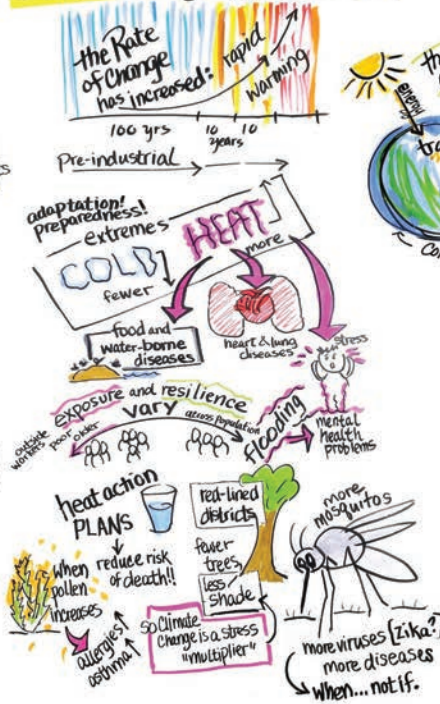 the Rate
of Change
has increased:
rapid
warming
100 yrs
10
years
10
Pre-industrial
adaptation!
preparedness!
extremes
HEAT
more
COLD
fewer
food and
water-borne
diseases
heart & lung
diseases
stress
exposure and resilience
vary
across population
outside
workers
poor
older
flooding
mental
health
problems
heat action
PLANS
reduce risk
of death!!
red-lined
districts
fewer
trees,
less
shade
When
pollen
increases
allergies
asthma
so Climate
change is a stress
"multiplier"
more
mosquitos
more viruses (zika?)
more diseases
When... not if.